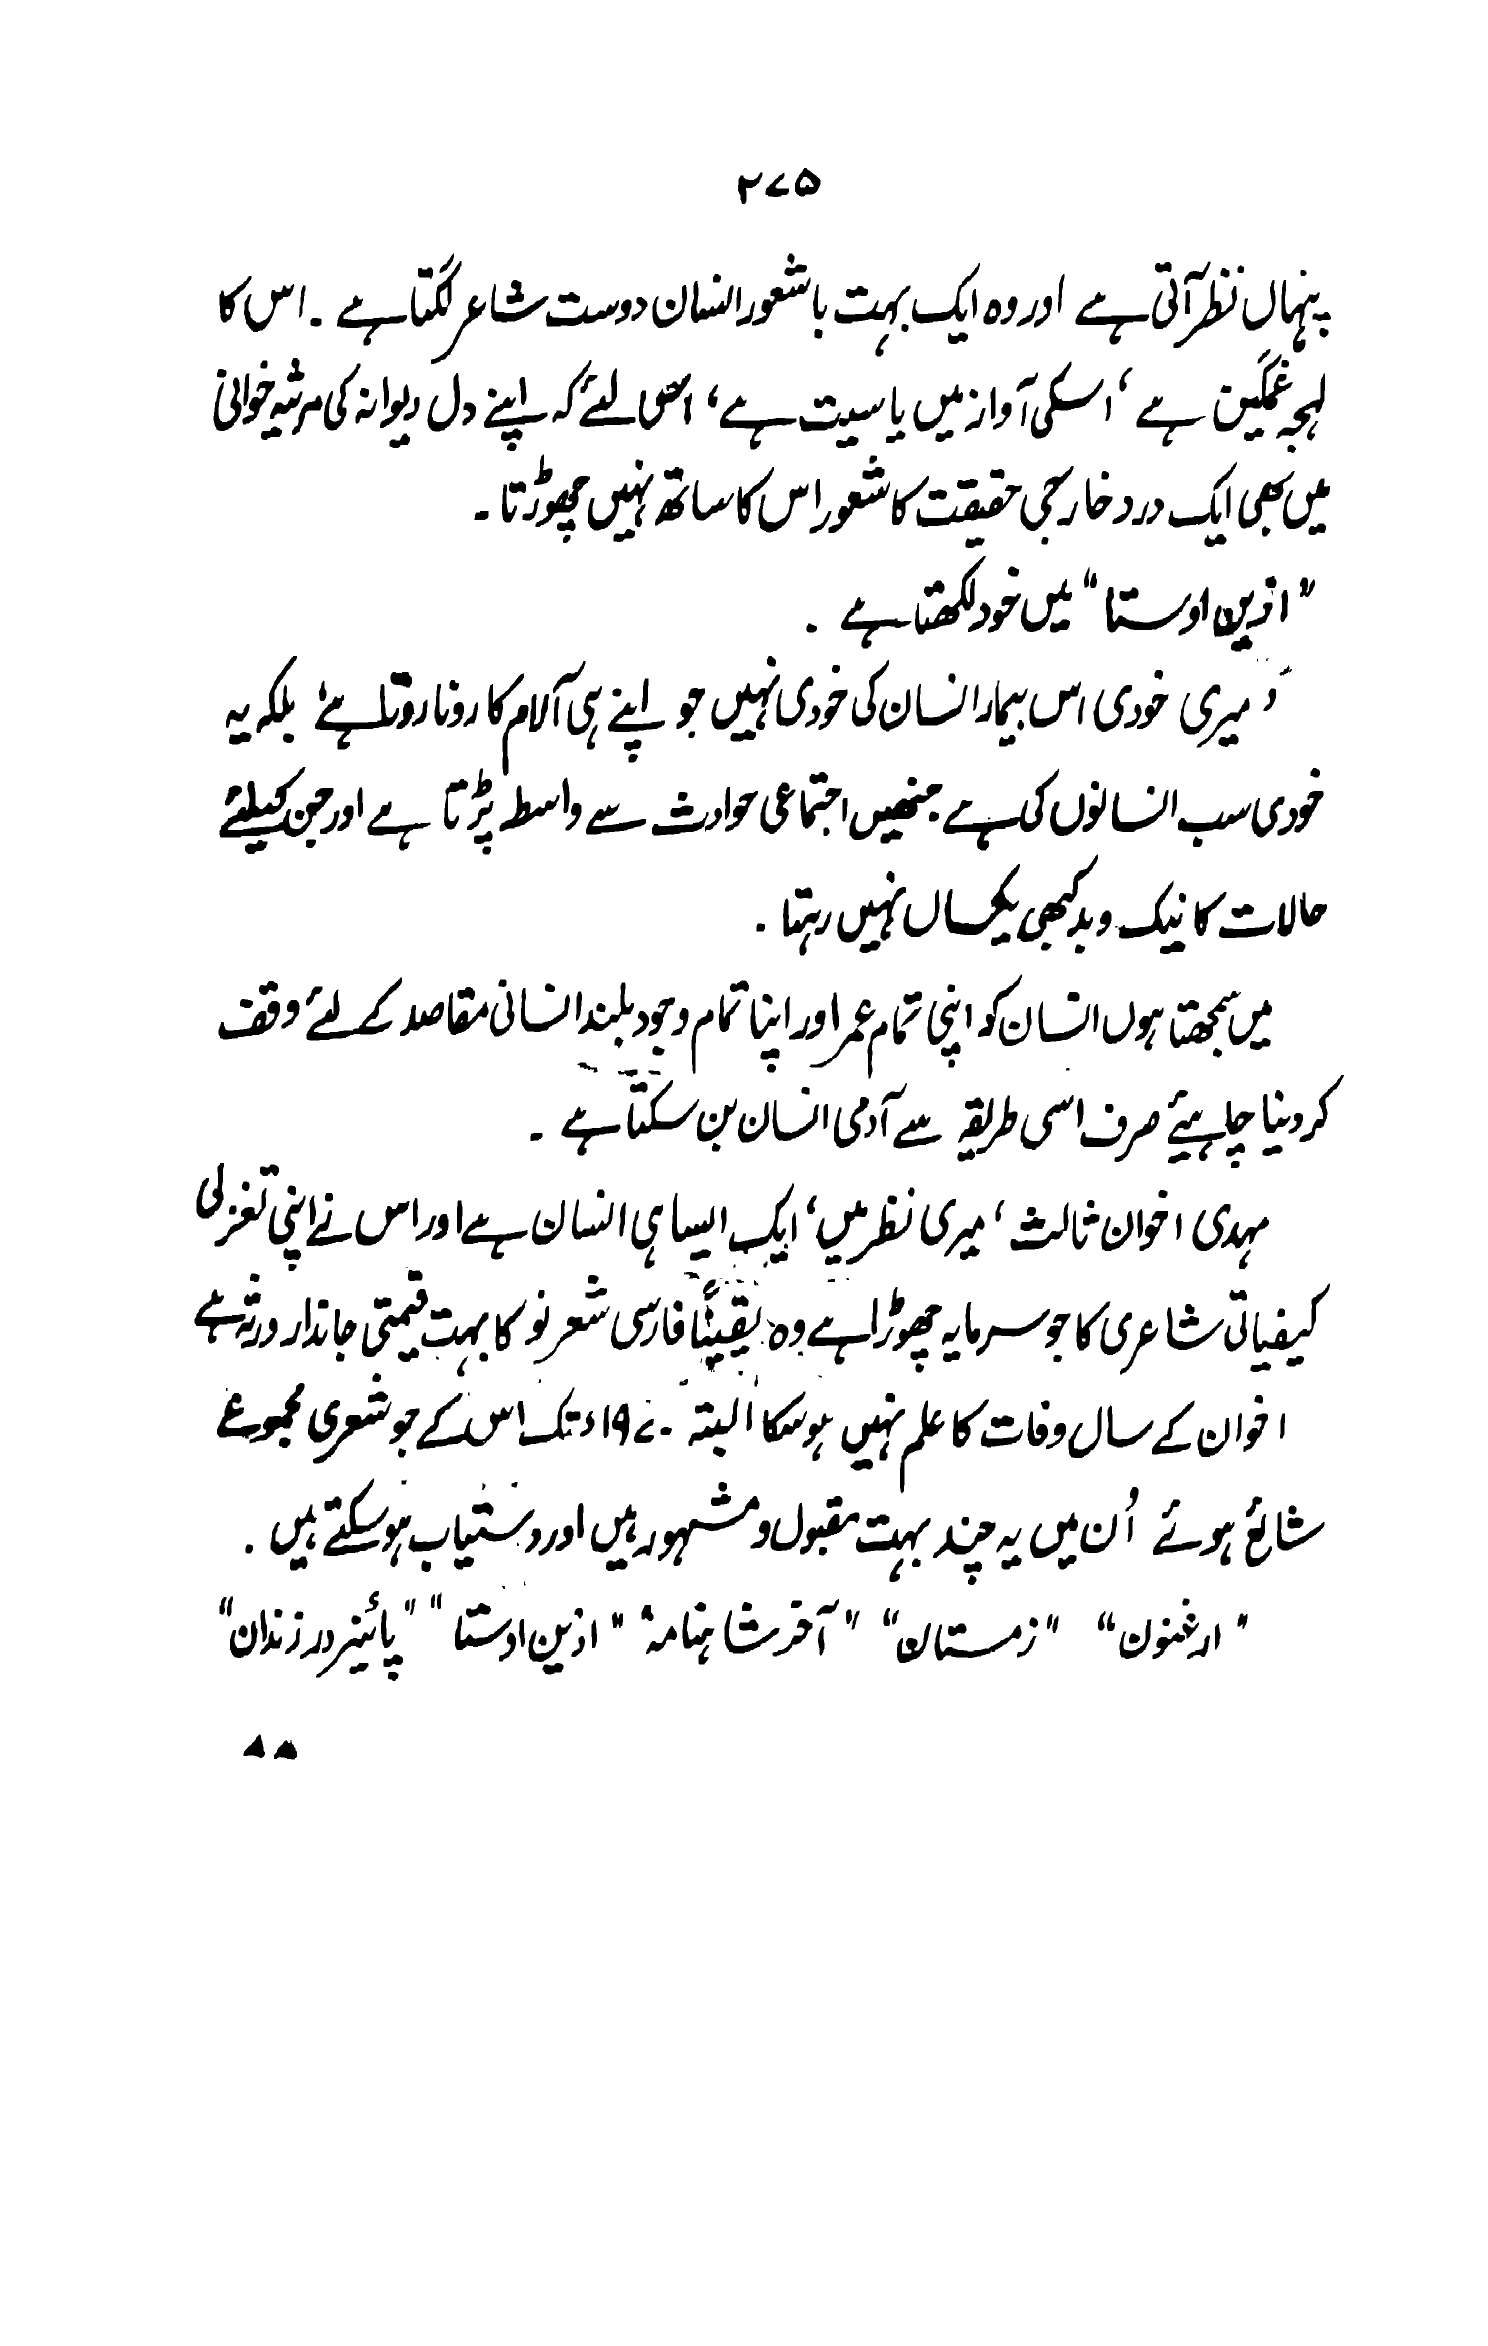 ۲۷۵
پنہاں نظر آتی ہے اور وہ ایک بہت باشعور انسان دوست شاعر لگتا ہے ۔ اس کا
لہجہ غمگین ہے ‘ اسکی آواز میں یاسیت ہے ‘ اس لئے کہ اپنے دل دیوانہ کی مرثیہ خوانی
میں بھی ایک درد خارجی حقیقت کا شعور اس کا ساتھ نہیں چھوڑتا ۔
"ازین اوستا" میں خود لکھتا ہے .
’ میری خودی اس بیمار انسان کی خودی نہیں جو اپنے ہی آلام کا رونا روتا ہے‘ بلکہ یہ
خودی سب انسانوں کی ہے جنھیں اجتماعی حوادث سے واسطہ پڑتا ہے اور جن کیلئے
حالات کا نیک و بد کبھی یکساں نہیں رہتا .
میں سمجھتا ہوں انسان کو اپنی تمام عمر اور اپنا تمام وجود بلند انسانی مقاصد کے لئے وقف
کر دینا چاہیئے صرف اسی طریقہ سے آدمی انسان بن سکتا ہے ۔
مہدی اخوان ثالث ‘ میری نظر میں ‘ ایک ایسا ہی انسان ہے اور اس نے اپنی تغزلی
کیفیاتی شاعری کا جو سرمایہ چھوڑا ہے وہ یقیناً فارسی شعر نو کا بہت قیمتی جاندار ورثہ ہے
اخوان کے سال وفات کا علم نہیں ہوسکا البتہ ۱۹۷۰ء تک اس کے جو شعری مجموعے
شائع ہوئے اُن میں یہ چند بہت مقبول و مشہور ہیں اور دستیاب ہوسکتے ہیں .
"ارغنون" "زمستان" "آخر شاہنامہ" "ازین اوستا" "پائیز در زندان"